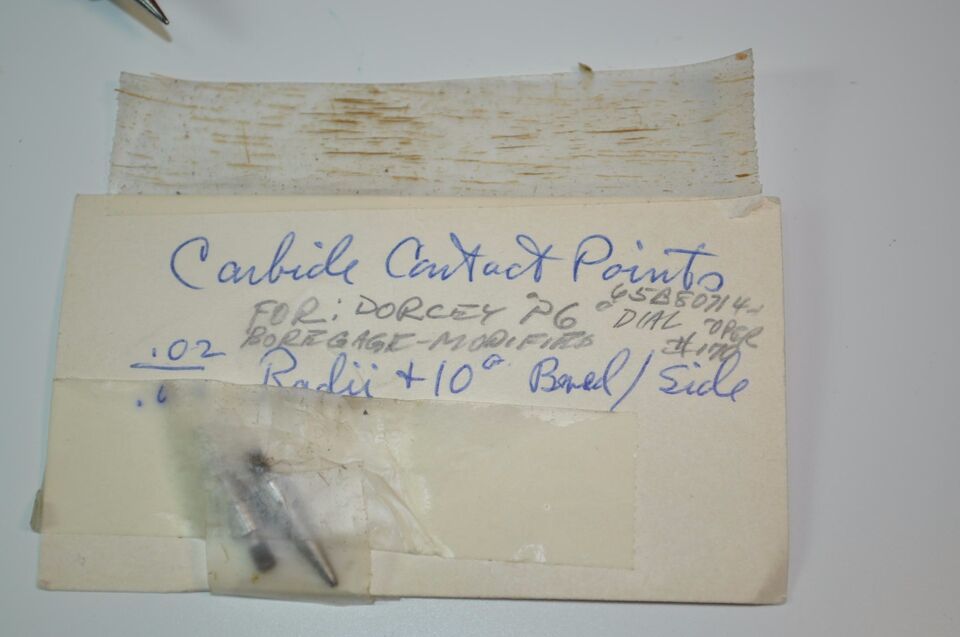 Carbide Contact Points
FOR: DORCEY P6 65B80714-
BOREGAGE-MODIFIED DIAL OPER
.02 Radii + 10° Bevel/Side